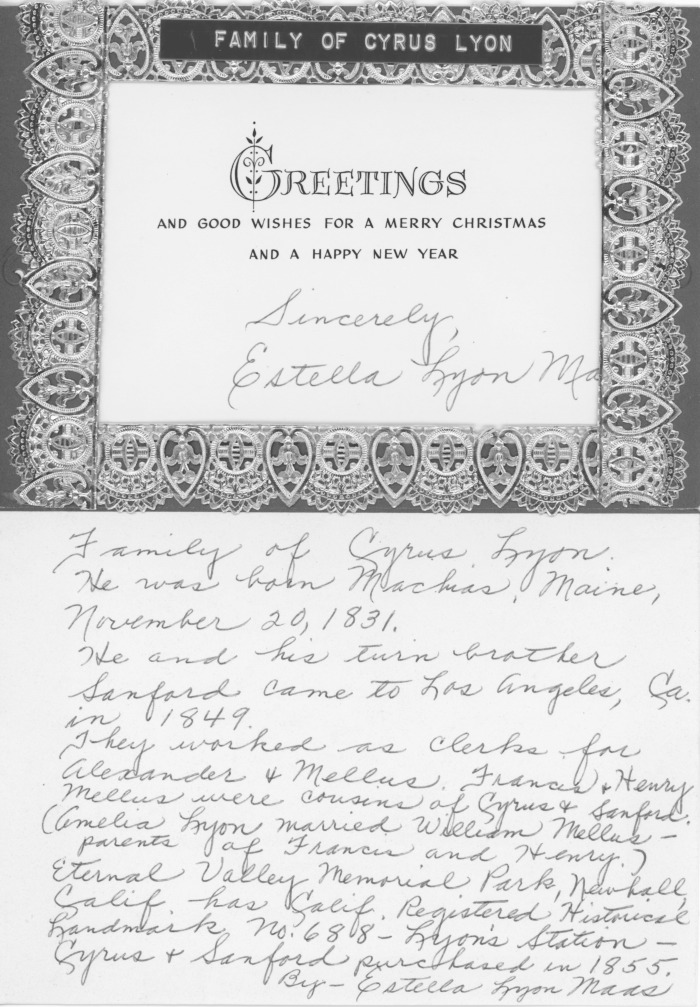 FAMILY OF CYRUS LYON
GREETINGS
AND GOOD WISHES FOR A MERRY CHRISTMAS
AND A HAPPY NEW YEAR
Sincerely,
Estella Lyon Ma
Family of Cyrus Lyon.
He was born Machias, Maine,
November 20, 1831.
He and his turn brother
Sanford came to Los Angeles, Ca.
in 1849.
They worked as clerks for
Alexander & Mellus. Francis & Henry
Mellus were cousins of Cyrus & Sanford.
(Amelia Lyon married William Mellus –
parents of Francis and Henry.)
Eternal Valley Memorial Park, Newhall,
Calif. has Calif. Registered Historical
Landmark No. 688 – Lyon's Station –
Cyrus & Sanford purchased in 1855.
By – Estella Lyon Maas